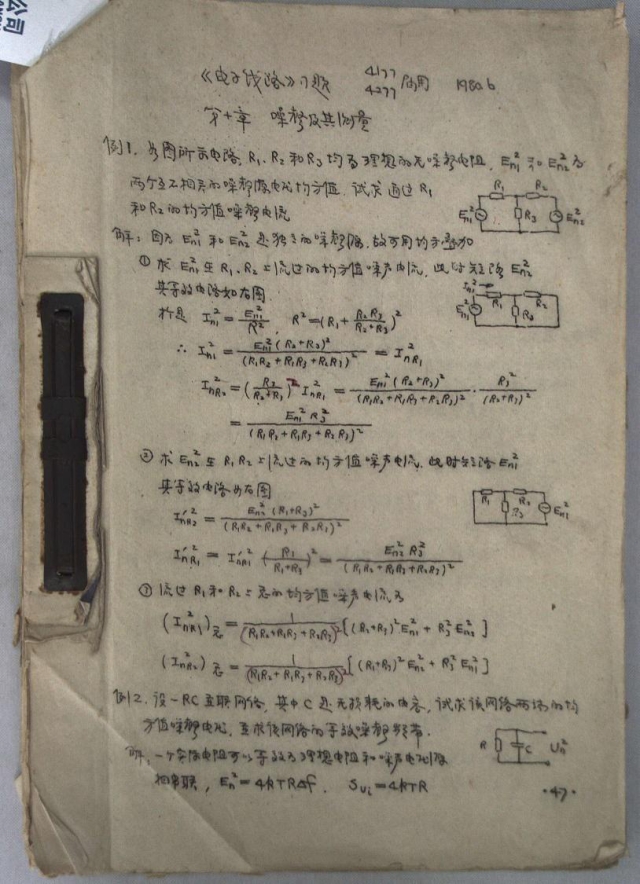 《电子线路》习题 4177 4277 使用 1980.6
第十章 噪声及其测量
例1. 如图所示电路, R₁、R₂和R₃均为理想的无噪声电阻, Eₙ₁²和Eₙ₂²为
两个互不相关的噪声源电动均方值. 试求通过R₁
和R₂的均方值噪声电流
R₁ R₂ R₃ Eₙ₁² Eₙ₂²
解: 因为Eₙ₁²和Eₙ₂²是独立的噪声源, 故可用均方叠加
① 求Eₙ₁²在R₁、R₂上流过的均方值噪声电流, 此时短路Eₙ₂²
其等效电路如右图
Iₙ₁² Eₙ₁² R₁ R₂ R₃
于是 Iₙ₁² = Eₙ₁²/R², R² = (R₁ + R₂R₃/(R₂+R₃))²
∴ Iₙ₁² = Eₙ₁²(R₂+R₃)²/(R₁R₂+R₁R₃+R₂R₃)² = IₙR₁²
IₙR₂² = (R₃/(R₂+R₃))² Iₙ₁² = Eₙ₁²(R₂+R₃)²/(R₁R₂+R₁R₃+R₂R₃)² · R₃²/(R₂+R₃)²
= Eₙ₁²R₃²/(R₁R₂+R₁R₃+R₂R₃)²
② 求Eₙ₂²在R₁R₂上流过的均方值噪声电流, 此时短路Eₙ₁²
其等效电路如右图
R₁ R₂ R₃ Eₙ₁²
I′ₙR₂² = Eₙ₂²(R₁+R₃)²/(R₁R₂+R₁R₃+R₂R₃)²
I′ₙR₁² = I′ₙR₂²(R₃/(R₁+R₃))² = Eₙ₂²R₃²/(R₁R₂+R₁R₃+R₂R₃)²
③ 流过R₁和R₂上总的均方值噪声电流为
(IₙR₁²)总 = 1/(R₁R₂+R₁R₃+R₂R₃)² [(R₂+R₃)²Eₙ₁² + R₃²Eₙ₂²]
(IₙR₂²)总 = 1/(R₁R₂+R₁R₃+R₂R₃)² [(R₁+R₃)²Eₙ₂² + R₃²Eₙ₁²]
例2. 设一RC并联网络, 其中C是无损耗的电容, 试求该网络两端的均
方值噪声电动, 并求该网络的等效噪声频带.
R C Uₙ²
解: 一个实际电阻可以等效为理想电阻和噪声电动源
相串联, Eₙ² = 4kTRΔf. Sᵤᵢ = 4kTR
·47·